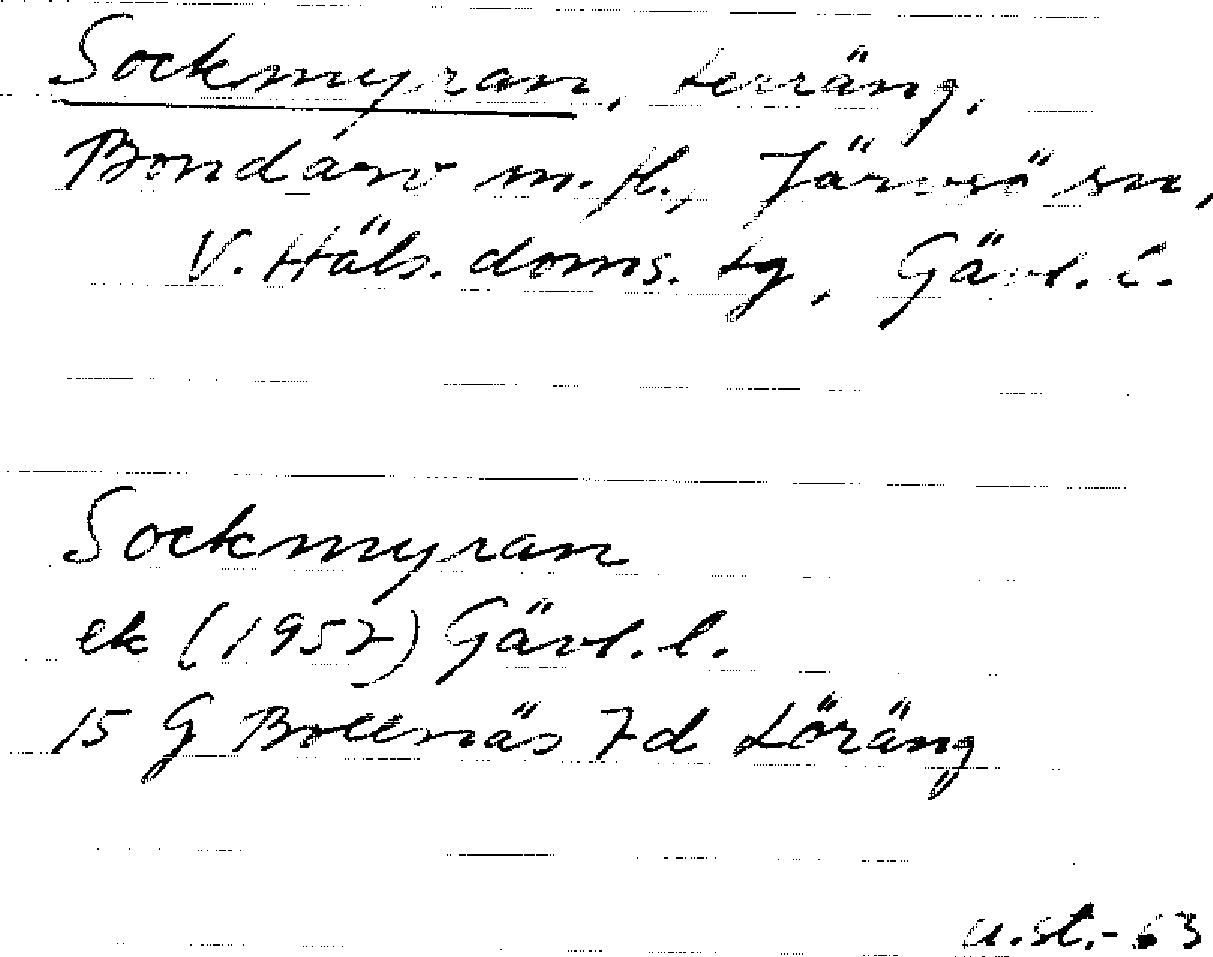 Sockmyran, terräng,
Bondarv m.fl., Järvsö sn,
V. Häls. doms. tg, Gävl. l.
Sockmyran
ek (1957) Gävl. l.
15 G Bollnäs 7d Löräng
u.st.-63